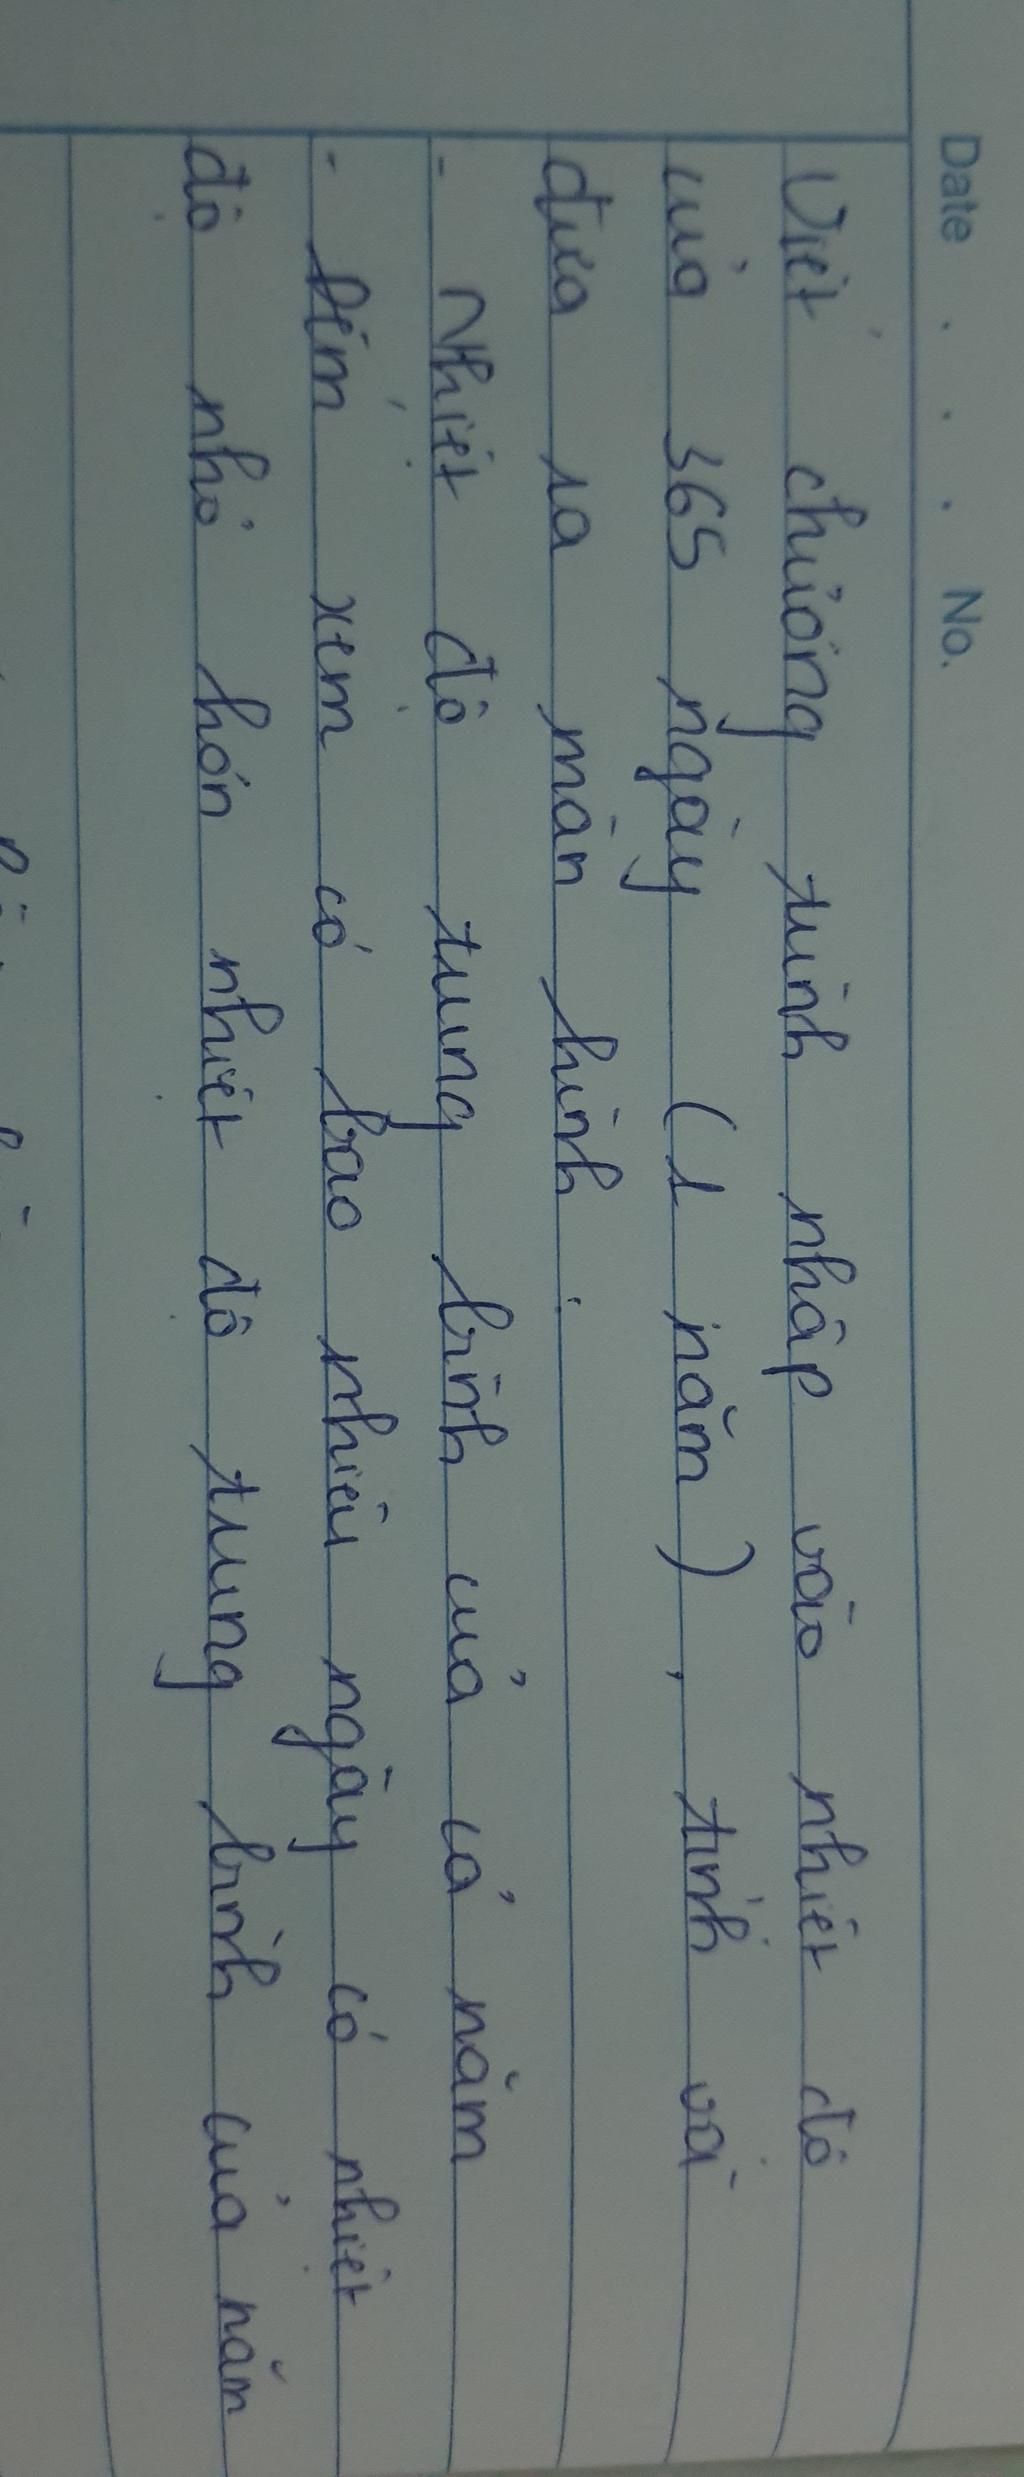 Date . . . No.
Viết chương trình nhập vào nhiệt độ
của 365 ngày (1 năm), tính và
đưa ra màn hình.
- Nhiệt độ trung bình của cả năm
- Đếm xem có bao nhiêu ngày có nhiệt
độ nhỏ hơn nhiệt độ trung bình của năm